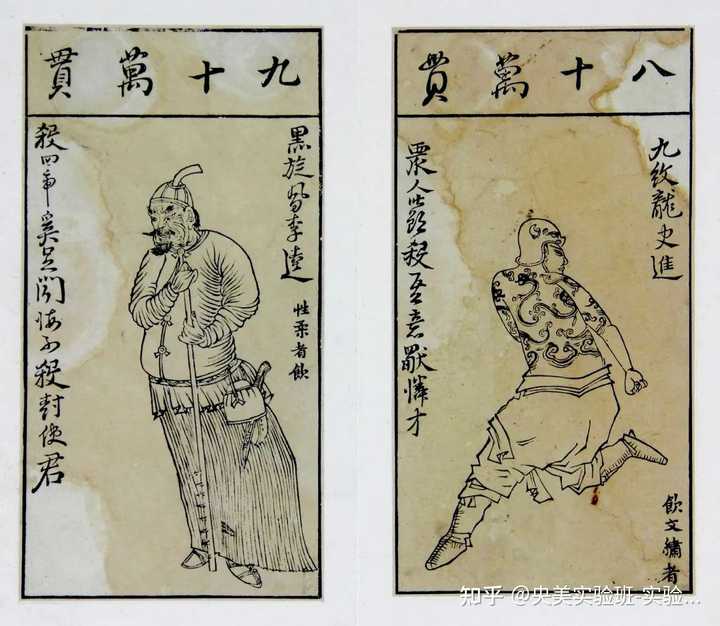 九十萬貫
黑旋風李逵
性柔者飲
殺四虎奚足聞悔不殺封使君
八十萬貫
九紋龍史進
飲文繡者
眾人皆欲殺吾意獨憐才
知乎 @央美实验班-实验...